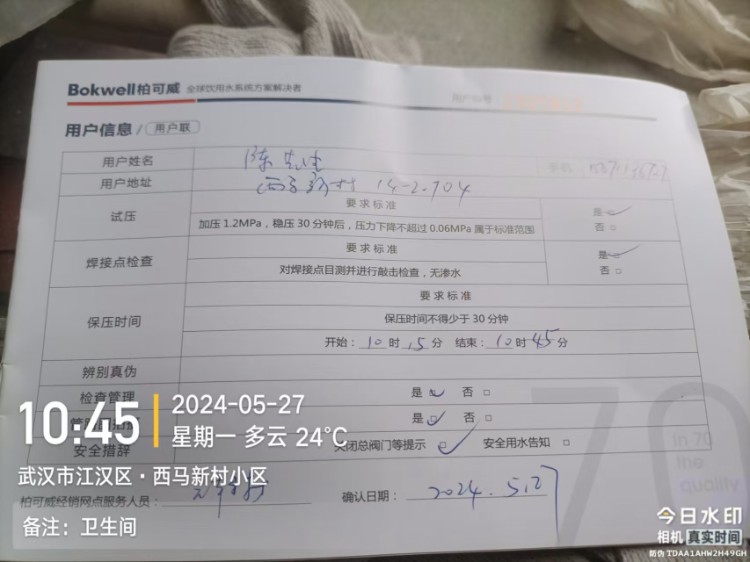 Bokwell柏可威 全球饮用水系统方案解决者
用户信息 / 用户联
用户姓名 陈先生
用户地址 西马新村 14-2.904
试压
要求标准
加压1.2MPa，稳压30分钟后，压力下降不超过0.06MPa属于标准范围
是
否
焊接点检查
要求标准
对焊接点目测并进行敲击检查，无渗水
是
否
保压时间
要求标准
保压时间不得少于30分钟
开始：10时15分 结束：10时45分
辨别真伪
检查管理 是 否
是 否
安全措辞 关闭总阀门等提示 安全用水告知
柏可威经销网点服务人员：
确认日期：2024.5.27
70
in 70
fine
quality
10:45
2024-05-27
星期一 多云 24°C
武汉市江汉区·西马新村小区
备注：卫生间
今日水印
相机 真实时间
防伪 TDAA1AHW2H49GH